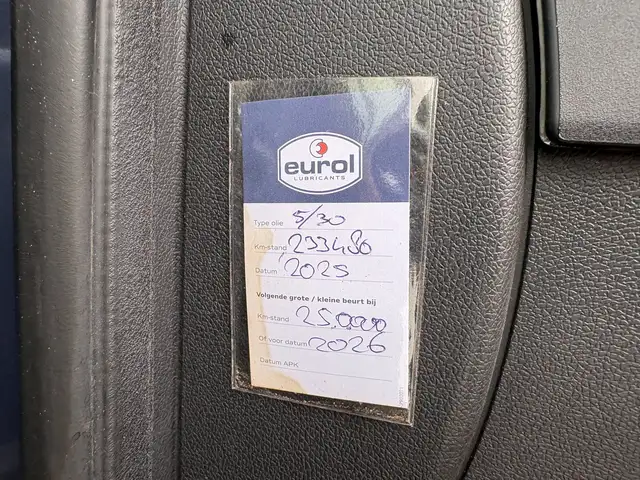 eurol
LUBRICANTS
Type olie 5/30
Km-stand 233480
Datum 2025
Volgende grote / kleine beurt bij
Km-stand 25.000
Of voor datum 2026
Datum APK